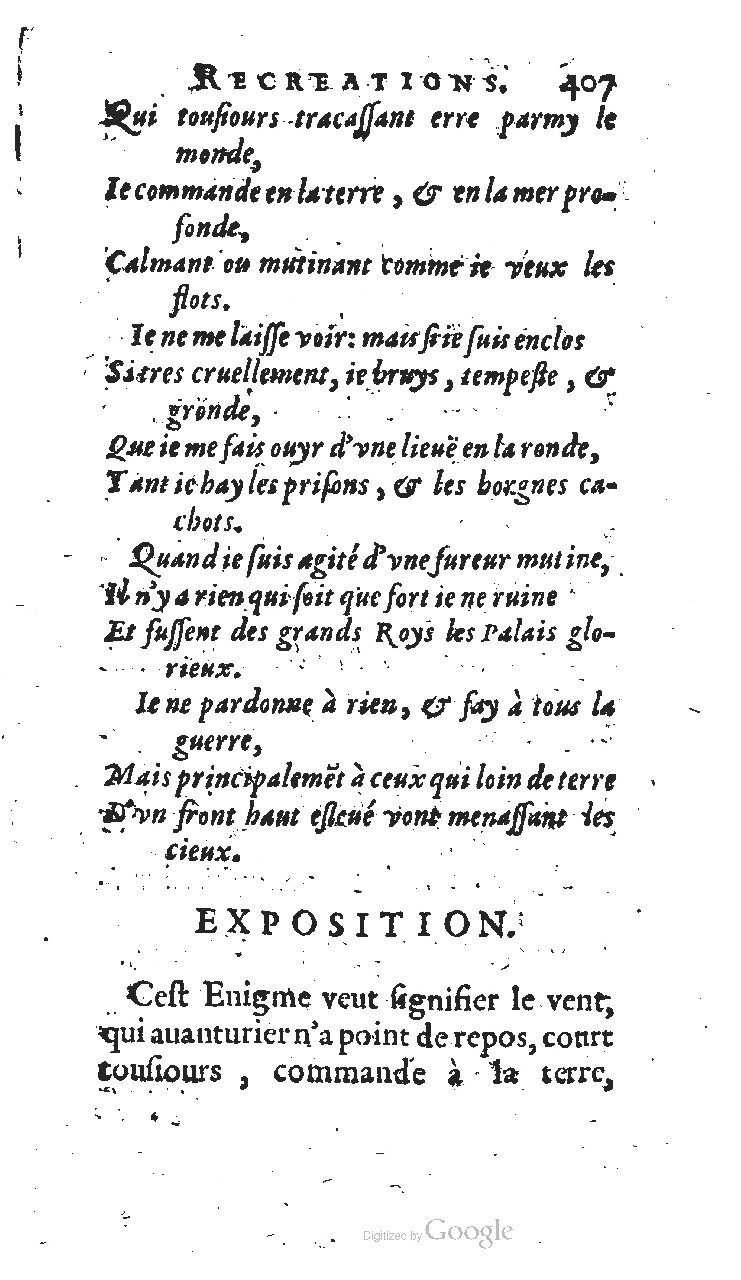 RECREATIONS. 407
Qui touſiours tracaſſant erre parmy le
monde,
Ie commande en la terre, & en la mer pro-
fonde,
Calmant ou mutinant comme ie veux les
flots.
Ie ne me laiſſe voir: mais ſi ie ſuis enclos
Si tres cruellement, ie bruys, tempeſte, &
gronde,
Que ie me fais ouyr d'vne lieuë en la ronde,
Tant ie hay les priſons, & les borgnes ca-
chots.
Quand ie ſuis agité d'vne fureur mutine,
Il n'y a rien qui ſoit que fort ie ne ruine
Et fuſſent des grands Roys les Palais glo-
rieux.
Ie ne pardonne à rien, & fay à tous la
guerre,
Mais principalemẽt à ceux qui loin de terre
D'vn front haut eſleué vont menaſſant les
cieux.
EXPOSITION.
Ceſt Enigme veut ſignifier le vent,
qui auanturier n'a point de repos, court
touſiours, commande à la terre,
Digitized by Google